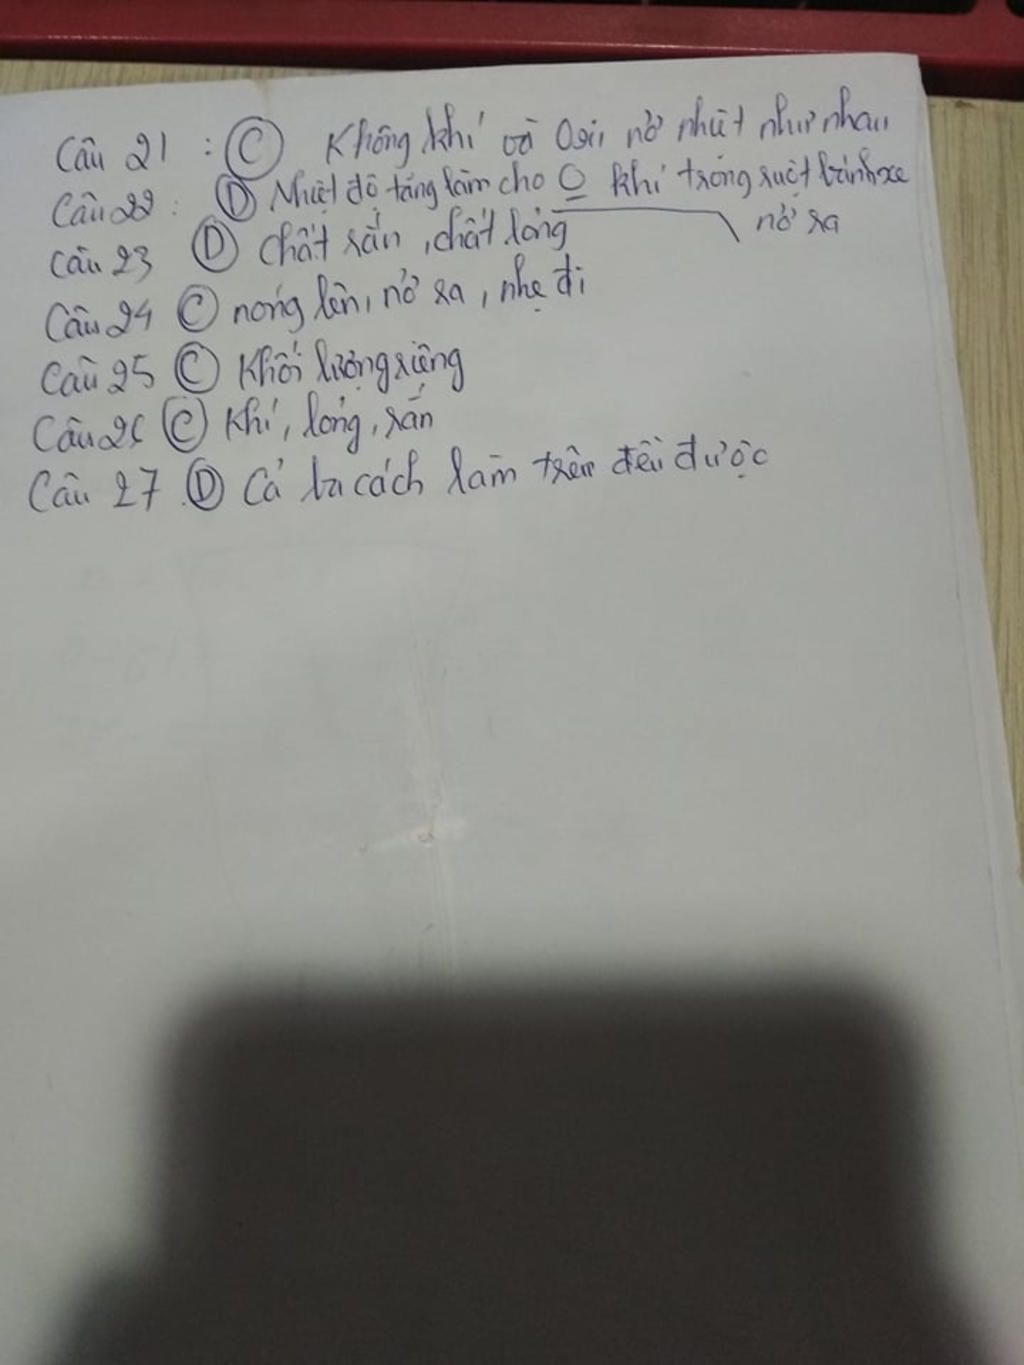 Câu 21 : C Không khí và Oxi nở nhiệt như nhau
Câu 22 : D Nhiệt độ tăng làm cho O khí trong ruột bánh xe
nở ra
Câu 23 D Chất rắn , chất lỏng
Câu 24 C nóng lên, nở ra , nhẹ đi
Câu 25 C Khối lượng riêng
Câu 26 C Khí, lỏng, rắn
Câu 27 D Cả ba cách làm trên đều được